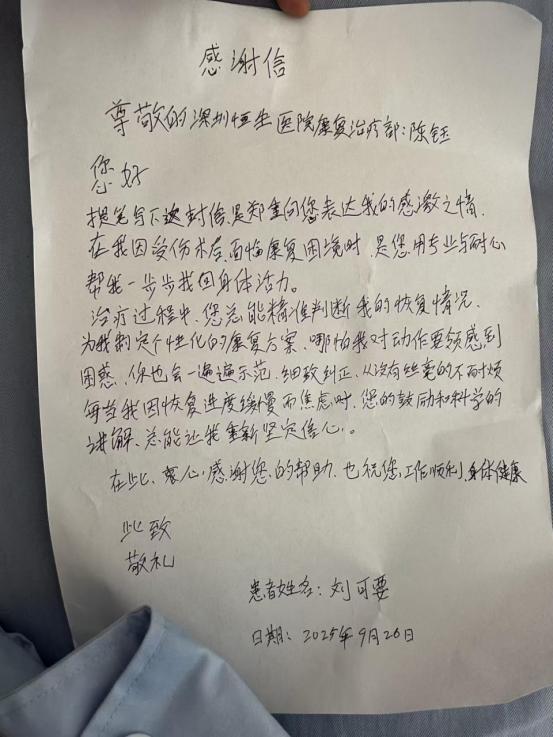 感谢信
尊敬的深圳恒生医院康复治疗部:陈钰
您好
提笔写下这封信,是郑重向您表达我的感激之情.
在我因受伤术后,面临康复困境时,是您用专业与耐心
帮我一步步找回身体活力。
治疗过程中,您总能精准判断我的恢复情况,
为我制定个性化的康复方案,哪怕我对动作要领感到
困惑,你也会一遍遍示范,细致纠正,从没有丝毫的不耐烦
每当我因恢复进度缓慢而焦虑时,您的鼓励和科学的
讲解、总能让我重新坚定信心。
在此、衷心感谢您的帮助,也祝您,工作顺利,身体健康
此致
敬礼
患者姓名:刘可要
日期:2025年9月26日